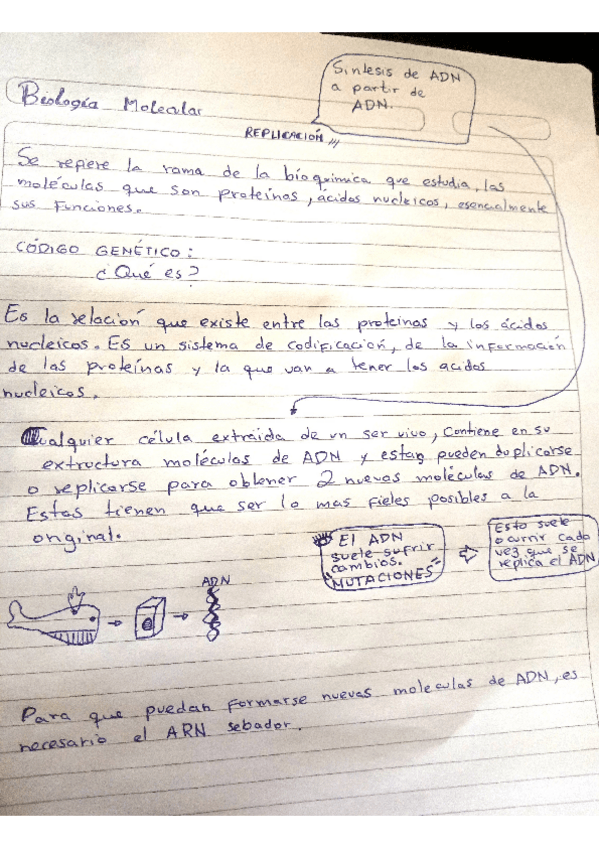 Síntesis de ADN
a partir de
ADN.
Biología Molecular
REPLICACIÓN
Se refiere la rama de la bioquimica que estudia, las
moléculas que son proteínas, ácidos nucleicos, esencialmente
sus funciones.
CÓDIGO GENÉTICO:
¿Qué es?
Es la relación que existe entre las proteinas y los ácidos
nucleicos. Es un sistema de codificación, de la información
de las proteínas y la que van a tener los acidos
nucleicos.
Cualquier célula extraida de un ser vivo, contiene en su
extructura moléculas de ADN y estan pueden duplicarse
o replicarse para obtener 2 nuevas moléculas de ADN.
Estas tienen que ser lo mas fieles posibles a la
original.
El ADN
suele sufrir
cambios.
"MUTACIONES"
Esto suele
ocurrir cada
vez que se
replica el ADN
ADN
Para que puedan formarse nuevas moleculas de ADN, es
necesario el ARN sebador.